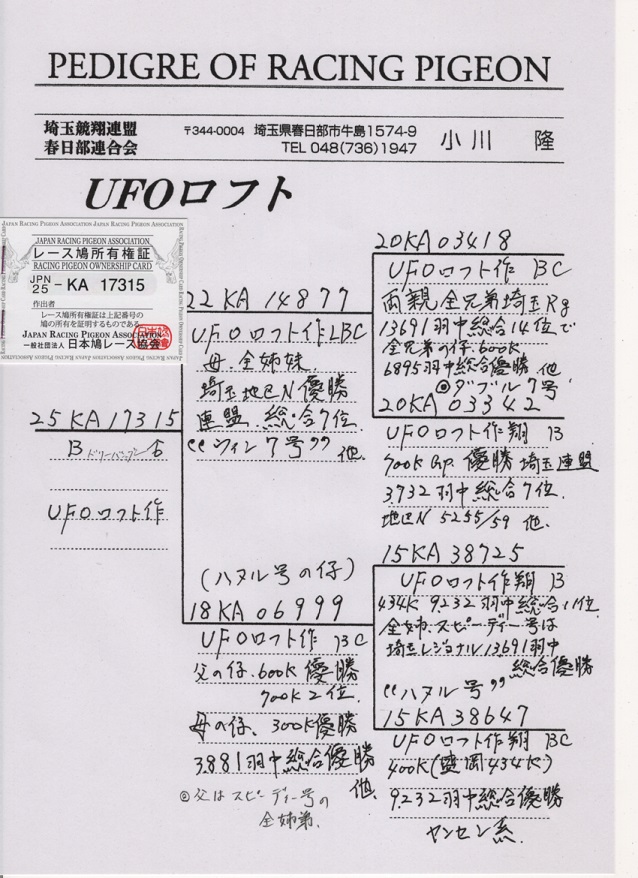 PEDIGRE OF RACING PIGEON
埼玉競翔連盟
春日部連合会
〒344-0004 埼玉県春日部市牛島1574-9
TEL 048(736)1947
小川 隆
UFOロフト
JAPAN RACING PIGEON ASSOCIATION
レース鳩所有権証
RACING PIGEON OWNERSHIP CARD
JPN
25 - KA 17315
作出者
レース鳩所有権証は上記番号の
鳩の所有を証明するものである
JAPAN RACING PIGEON ASSOCIATION
一般社団法人 日本鳩レース協会
25 KA 17315
B
UFOロフト作
22 KA 14877
UFOロフト作LBC
母.全姉妹.
埼玉地区N優勝
連盟 総合7位.
“ウィン7号” 他.
(ハヌル号の仔)
18 KA 06999
UFOロフト作 BC
父の仔.600K 優勝
700K 2位.
母の仔、300K優勝
3.881羽中総合優勝
他.
◎父はスピーディー号の
全姉弟.
20KA 03418
UFOロフト作 BC
両親全兄弟埼玉Rg
13691羽中総合14位で
全兄弟の仔.600K
6895羽中総合優勝 他
◎ダブル7号
20KA 03342
UFOロフト作翔 B
700K Gp. 優勝 埼玉連盟
3.732羽中総合7位.
地区N 5255/59 他.
15KA 38725
UFOロフト作翔 B
434K 9.232羽中総合11位
全姉.スピーディー号は
埼玉レジョナル13691羽中
総合優勝
“ハヌル号”
15KA 38647
UFOロフト作翔 BC
400K(盛岡434K)
9.232羽中総合優勝
ヤンセン系.